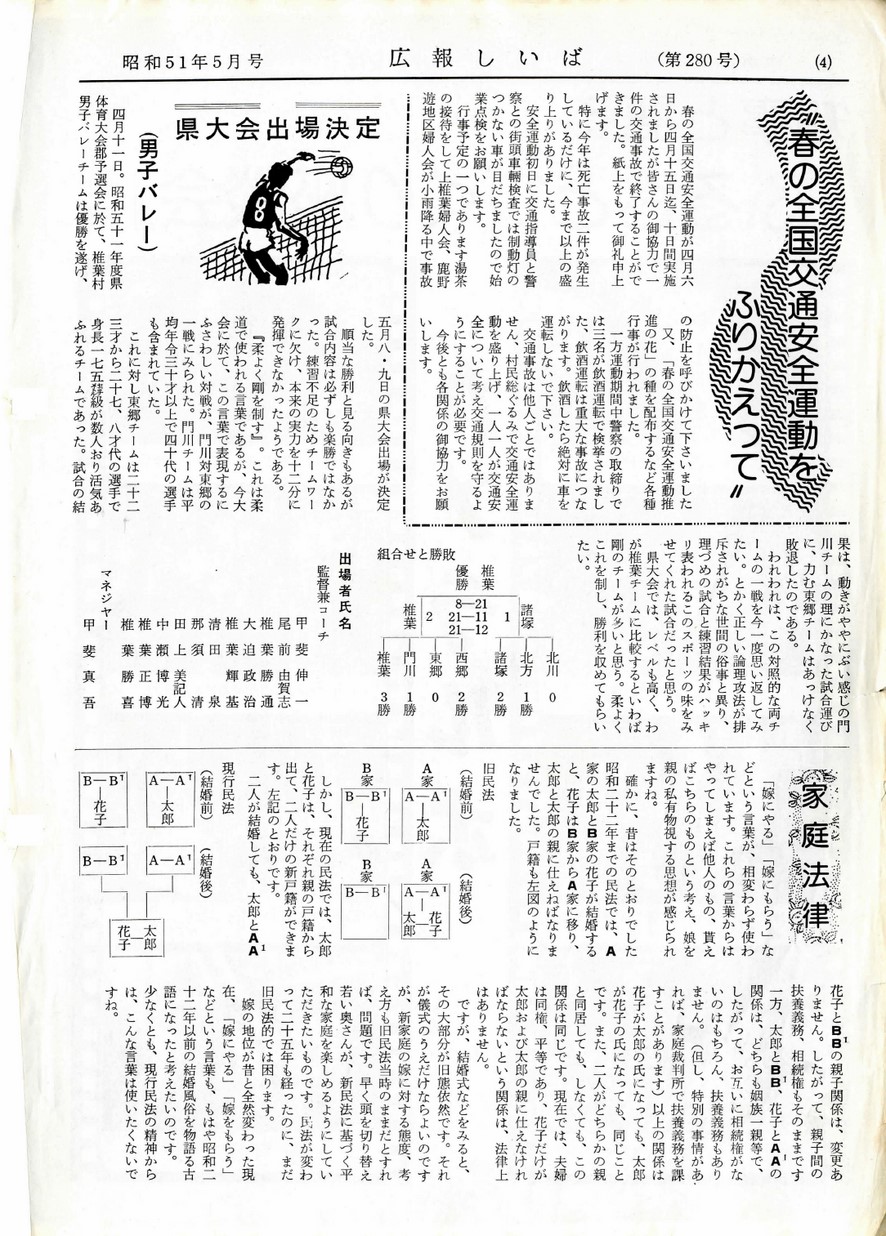 昭和51年5月号
広報しいば
(第280号)
(4)
"春の全国交通安全運動を
ふりかえって"
春の全国交通安全運動が四月六
日から四月十五日迄、十日間実施
されましたが皆さんの御協力で一
件の交通事故で終了することがで
きました。紙上をもって御礼申上
げます。
特に今年は死亡事故二件が発生
しているだけに、今まで以上の盛
り上りがありました。
安全運動初日に交通指導員と警
察との街頭車輌検査では制動灯の
つかない車が目だちましたので始
業点検をお願いします。
行事予定の一つであります湯茶
の接待をして上椎葉婦人会、鹿野
遊地区婦人会が小雨降る中で事故
の防止を呼びかけて下さいました
又、「春の全国交通安全運動推
進の花」の種を配布するなど各種
行事が行われました。
一方運動期間中警察の取締りで
は三名が飲酒運転で検挙されまし
た、飲酒運転は重大な事故につな
がります。飲酒したら絶対に車を
運転しないで下さい。
交通事故は他人ごとではありま
せん、村民総ぐるみで交通安全運
動を盛り上げ、一人一人が交通安
全について考え交通規則を守るよ
うにすることが必要です。
今後とも各関係の御協力をお願
いします。
県大会出場決定
8
(男子バレー)
四月十一日。昭和五十一年度県
体育大会郡予選会に於て、椎葉村
男子バレーチームは優勝を遂げ、
五月八・九日の県大会出場が決定
した。
順当な勝利と見る向きもあるが
試合内容は必ずしも楽勝ではなか
った。練習不足のためチームワー
クに欠け、本来の実力を十二分に
発揮できなかったようである。
『柔よく剛を制す』。これは柔
道で使われる言葉であるが、今大
会に於て、この言葉で表現するに
ふさわしい対戦が、門川対東郷の
一戦にみられた。門川チームは平
均年令三十才以上で四十代の選手
も含まれていた。
これに対し東郷チームは二十二
三才から二十七、八才代の選手で
身長一七五㌢級が数人おり活気あ
ふれるチームであった。試合の結
果は、動きがややにぶい感じの門
川チームの理にかなった試合運び
に、力む東郷チームはあっけなく
敗退したのである。
われわれは、この対照的な両チ
ームの一戦を今一度思い返してみ
たい。とかく正しい論理攻法が排
斥されがちな世間の俗事と異り、
理づめの試合と練習結果がハッキ
リ表われるこのスポーツの味をみ
せてくれた試合だったと思う。
県大会では、レベルも高く、わ
が椎葉チームに比較するといわば
剛のチームが多いと思う。柔よく
これを制し、勝利を収めてもらい
たい。
組合せと勝敗
優勝 椎葉
椎葉 2
8—21
21—11
21—12
1 諸塚
北川 0
北方 1勝
諸塚 2勝
西郷 2勝
東郷 0
門川 1勝
椎葉 3勝
出場者氏名
監督兼コーチ
甲斐伸一
尾前由賀志
椎葉勝通
大迫政治
椎葉輝基
清田泉
那須清
田上美記人
中瀬博光
椎葉正博
椎葉勝喜
マネジャー
甲斐真吾
家庭法律
「嫁にやる」「嫁にもらう」な
どという言葉が、相変わらず使わ
れています。これらの言葉からは
やってしまえば他人のもの、貰え
ばこちらのものという考え、娘を
親の私有物視する思想が感じられ
ますね。
確かに、昔はそのとおりでした
昭和二十二年までの民法では、A
家の太郎とB家の花子が結婚する
と、花子はB家からA家に移り、
太郎と太郎の親に仕えねばなりま
せんでした。戸籍も左図のように
なりました。
旧民法
(結婚前)
A家
A—A¹
太郎
B家
B—B¹
花子
(結婚後)
A家
A—A¹
太郎 花子
B家
B—B¹
しかし、現在の民法では、太郎
と花子は、それぞれ親の戸籍から
出て、二人だけの新戸籍ができま
す。左記のとおりです。
二人が結婚しても、太郎とAA¹
現行民法
(結婚前)
A—A¹
太郎
B—B¹
花子
(結婚後)
A—A¹
B—B¹
太郎
花子
花子とBB¹の親子関係は、変更あ
りません。したがって、親子間の
扶養義務、相続権もそのままです
一方、太郎とBB¹、花子とAA¹の
関係は、どちらも姻族一親等で、
したがって、お互いに相続権がな
いのはもちろん、扶養義務もあり
ません。(但し、特別の事情があ
れば、家庭裁判所で扶養義務を課
すことがあります)以上の関係は
花子が太郎の氏になっても、太郎
が花子の氏になっても、同じこと
です。また、二人がどちらかの親
と同居しても、しなくても、この
関係は同じです。現在では、夫婦
は同権、平等であり、花子だけが
太郎および太郎の親に仕えなけれ
ばならないという関係は、法律上
はありません。
ですが、結婚式などをみると、
その大部分が旧態依然です。それ
が儀式のうえだけならよいのです
が、新家庭の嫁に対する態度、考
え方も旧民法当時のままだとすれ
ば、問題です。早く頭を切り替え
若い奥さんが、新民法に基づく平
和な家庭を楽しめるようにしてい
ただきたいものです。民法が変わ
って二十五年も経ったのに、まだ
旧民法的では困ります。
嫁の地位が昔と全然変わった現
在、「嫁にやる」「嫁をもらう」
などという言葉も、もはや昭和二
十二年以前の結婚風俗を物語る古
語になったと考えたいのです。
少なくとも、現行民法の精神から
は、こんな言葉は使いたくないで
すね。